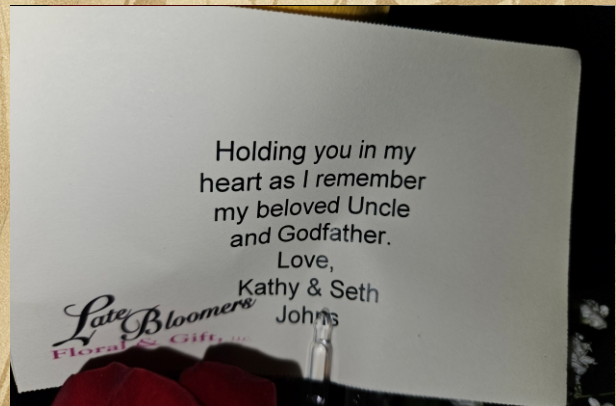 Holding you in my
heart as I remember
my beloved Uncle
and Godfather.
Love,
Kathy & Seth
Johns
Late Bloomers
Floral & Gift, LLC